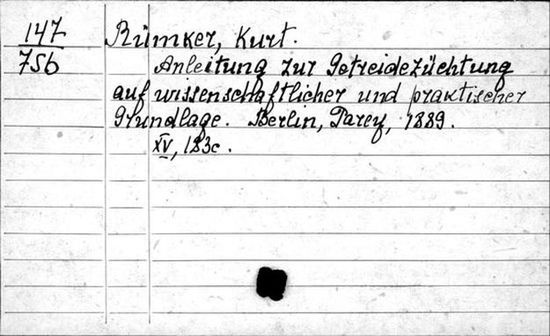 147 Rümker, Kurt.
756 Anleitung zur Getreidezüchtung
auf wissenschaftlicher und praktischer
Grundlage. Berlin, Parey, 1889.
XV, 183c.